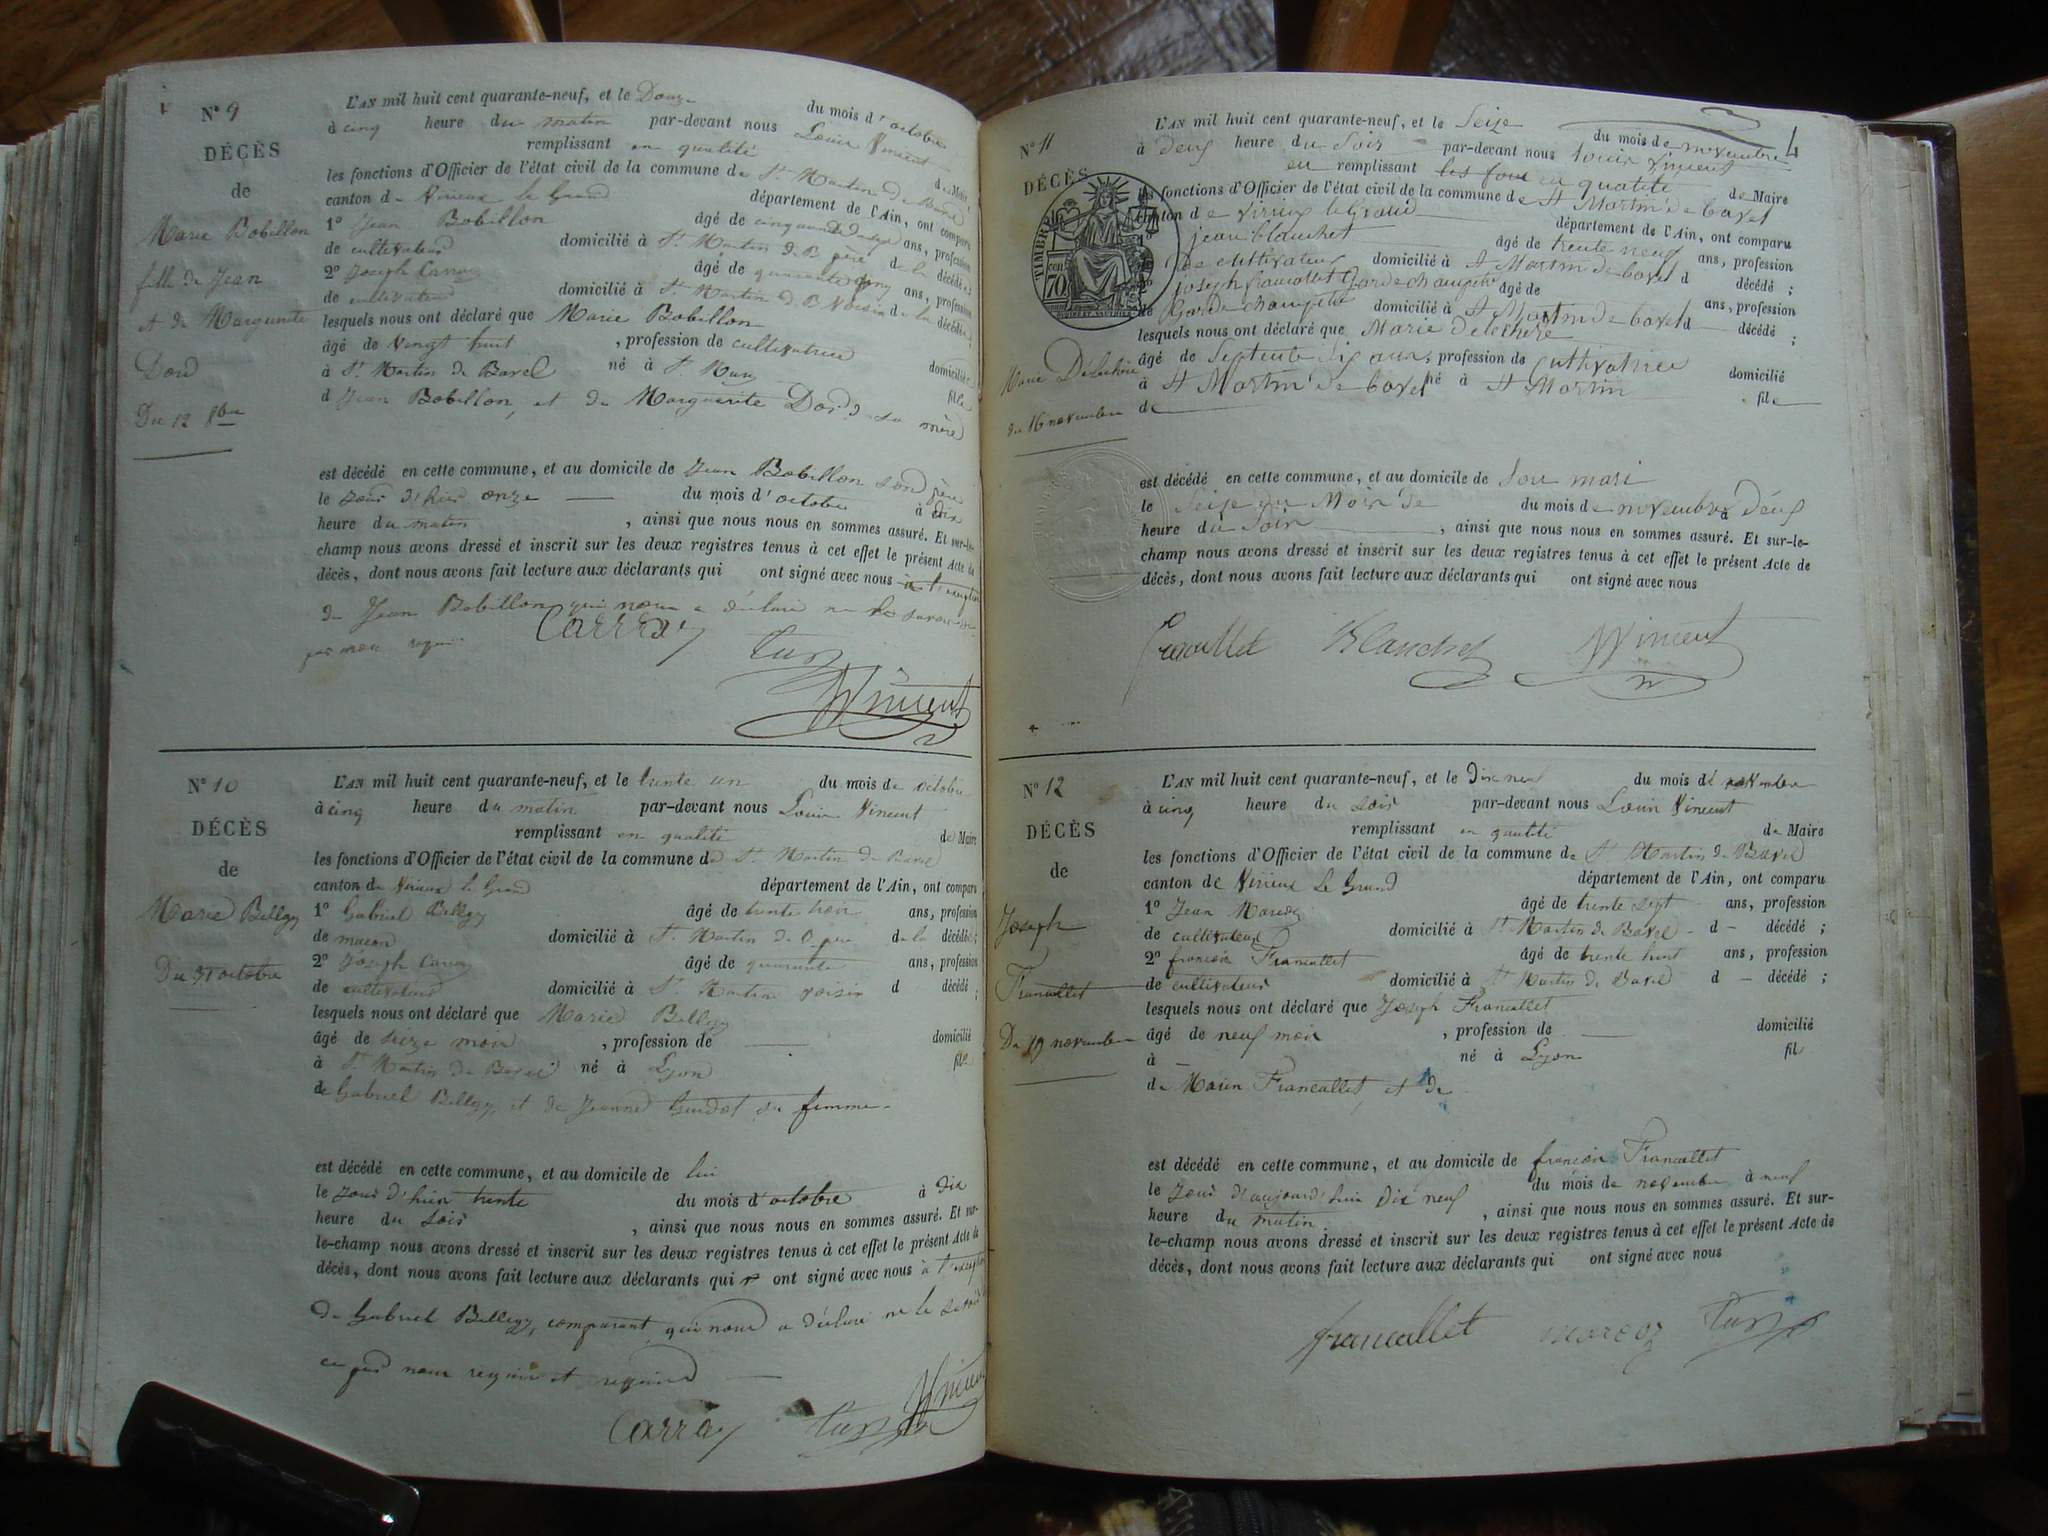 N° 9
DÉCÈS
de
Marie Bobillon
fille de Jean
et de Marguerite
Dord
Du 12 8bre
L'AN mil huit cent quarante-neuf, et le Douze du mois d'octobre
à cinq heure du matin par-devant nous Louis Vincent
remplissant en qualité de Maire,
les fonctions d'Officier de l'état civil de la commune de St Martin de Bavel
canton de Virieux le Grand département de l'Ain, ont comparu
1° Jean Bobillon âgé de cinquante ans, profession
de cultivateur domicilié à St Martin de B père de la décédée ;
2° Joseph Carray âgé de quarante cinq ans, profession
de cultivateur domicilié à St Martin de B Voisin de la décédée ;
lesquels nous ont déclaré que Marie Bobillon
âgé de vingt huit , profession de cultivatrice domicilié
à St Martin de Bavel né à St Martin fille
d Jean Bobillon, et de Marguerite Dord sa mère
est décédé en cette commune, et au domicile de Jean Bobillon son père
le jour d'hier onze du mois d'octobre à dix
heure du matin , ainsi que nous nous en sommes assuré. Et sur-le-
champ nous avons dressé et inscrit sur les deux registres tenus à cet effet le présent Acte de
décès, dont nous avons fait lecture aux déclarants qui ont signé avec nous à l'exception
de Jean Bobillon qui nous a déclaré ne le savoir
requis
Carray
Vincent
N° 10
DÉCÈS
de
Marie Billegy
Du 31 octobre
L'AN mil huit cent quarante-neuf, et le trente un du mois de octobre
à cinq heure du matin par-devant nous Louis Vincent
remplissant en qualité de Maire
les fonctions d'Officier de l'état civil de la commune de St Martin de Bavel
canton de Virieux le Grand département de l'Ain, ont comparu
1° Gabriel Billegy âgé de trente trois ans, profession
de macon domicilié à St Martin de B père de la décédé ;
2° Joseph Carray âgé de quarante ans, profession
de cultivateur domicilié à St Martin voisin d décédé ;
lesquels nous ont déclaré que Marie Billegy
âgé de seize mois , profession de domicilié
à St Martin de Bavel né à Lyon fille
de Gabriel Billegy, et de Jeanne Guidot sa femme
est décédé en cette commune, et au domicile de lui
le jour d'hier trente du mois d'octobre à dix
heure du soir , ainsi que nous nous en sommes assuré. Et sur-
le-champ nous avons dressé et inscrit sur les deux registres tenus à cet effet le présent Acte de
décès, dont nous avons fait lecture aux déclarants qui ont signé avec nous à l'exception
de Gabriel Billegy, comparant, qui nous a déclaré ne le savoir
requis
Carray Vincent
4
N° 11
DÉCÈS
TIMBRE
70 cen
Marie Delechère
du 16 novembre
L'AN mil huit cent quarante-neuf, et le Seize du mois de novembre
à deux heure du Soir par-devant nous louis vincent
en remplissant les fonc en qualité de Maire
les fonctions d'Officier de l'état civil de la commune de St Martin de bavel
canton de virieux le Grand département de l'Ain, ont comparu
1° jean blanchet âgé de trente neuf ans, profession
de cultivateur domicilié à St Martin de bavel d décédé ;
2° joseph francallet Garde champetre âgé de ans, profession
de Garde champetre domicilié à St Martin de bavel d décédé ;
lesquels nous ont déclaré que Marie delechere
âgé de Septente Six ans, profession de Cultivatrice domicilié
à St Martin de bavel né à St Martin fil
de
est décédé en cette commune, et au domicile de Son mari
le Seize du Mois de du mois de novembre à Deux
heure du Soir , ainsi que nous nous en sommes assuré. Et sur-le-
champ nous avons dressé et inscrit sur les deux registres tenus à cet effet le présent Acte de
décès, dont nous avons fait lecture aux déclarants qui ont signé avec nous
Blanchet Vincent
N° 12
DÉCÈS
de
Joseph
Francallet
Du 19 novembre
L'AN mil huit cent quarante-neuf, et le dix neuf du mois de novembre
à cinq heure du soir par-devant nous Louis Vincent
remplissant en qualité de Maire
les fonctions d'Officier de l'état civil de la commune de St Martin de Bavel
canton de Virieux Le Grand département de l'Ain, ont comparu
1° Jean Marcoz âgé de trente sept ans, profession
de cultivateur domicilié à St Martin de Bavel d décédé ;
2° francois Francallet âgé de trente huit ans, profession
de cultivateur domicilié à St Martin de Bavel d décédé ;
lesquels nous ont déclaré que Joseph Francallet
âgé de neuf mois , profession de domicilié
à né à Lyon fil
de Marin Francallet, et de
est décédé en cette commune, et au domicile de francois Francallet
le jour d'aujourd'hui dix neuf du mois de novembre à neuf
heure du matin , ainsi que nous nous en sommes assuré. Et sur-
le-champ nous avons dressé et inscrit sur les deux registres tenus à cet effet le présent Acte de
décès, dont nous avons fait lecture aux déclarants qui ont signé avec nous
francallet marcoz